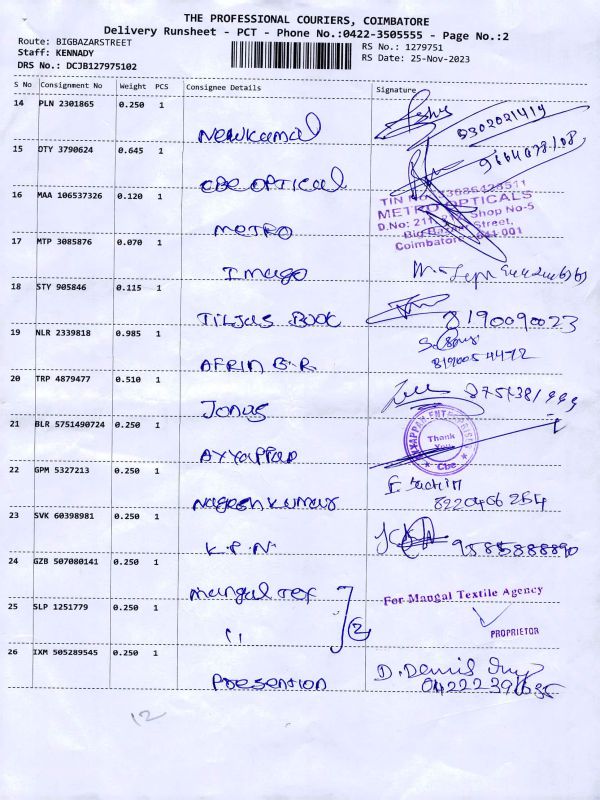 THE PROFESSIONAL COURIERS, COIMBATORE
Delivery Runsheet - PCT - Phone No.:0422-3505555 - Page No.:2
Route: BIGBAZARSTREET
Staff: KENNADY
DRS No.: DCJB127975102
RS No.: 1279751
RS Date: 25-Nov-2023
S No Consignment No Weight PCS Consignee Details Signature
14 PLN 2301865 0.250 1
Newkamal
9302021419
15 DTY 3790624 0.645 1
CBE OPTICAL
16 MAA 106537326 0.120 1
METRO
METRO OPTICALS
Shop No-5
Big Bazaar Street,
Coimbatore - 641 001
17 MTP 3085876 0.070 1
Imago
18 STY 905846 0.115 1
TILJAS BOOK
8190090023
19 NLR 2339818 0.985 1
AFRIN B.R.
819005 4472
20 TRP 4879477 0.510 1
Jonas
21 BLR 5751490724 0.250 1
AYYAPPAD
Thank You
Cbe.
22 GPM 5327213 0.250 1
Nagesh Kumar
8220406254
23 SVK 60398981 0.250 1
K.P.N.
9585888890
24 GZB 507080141 0.250 1
Mangal Tex
For Mangal Textile Agency
25 SLP 1251779 0.250 1
" 2
PROPRIETOR
26 IXM 505289545 0.250 1
Presention
12